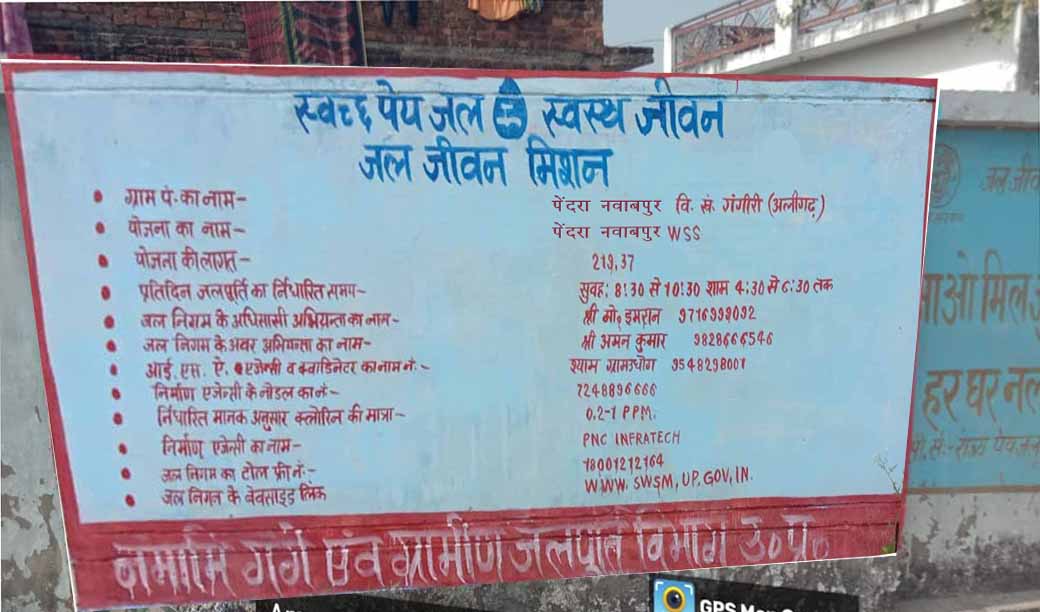 स्वच्छ पेय जल स्वस्थ जीवन
जल जीवन मिशन
ग्राम पं. का नाम- पेंदरा नवाबपुर वि. खं. गंगीरी (अलीगढ़)
योजना का नाम- पेंदरा नवाबपुर WSS
योजना की लागत- 219,37
प्रतिदिन जलपूर्ति का निर्धारित समय- सुवह: 8:30 से 10:30 शाम 4:30 से 6:30 तक
जल निगम के अधिसासी अभियन्ता का नाम- श्री मो. इमरान 9716999092
जल निगम के अवर अभियन्ता का नाम- श्री अमन कुमार 9828666546
आई. एस. ऐ. एजेन्सी व क्वाडिनेटर का नाम नं.- श्याम ग्रामउधोग 9548298001
निर्माण एजेन्सी के नोडल का नं- 7248896666
निर्धारित मानक अनुसार क्लोरिन की मात्रा- 0.2-1 PPM.
निर्माण एजेन्सी का नाम- PNC INFRATECH
जल निगम का टोल फ्री नं:- 18001212164
जल निगम के बेवसाइड लिंक WWW. SWSM, UP. GOV, IN.
नमामि गंगे एंव ग्रामीण जलपूर्ति विभाग उ० प्र०
जल जीव
आओ मिल
हर घर नल
GPS Map